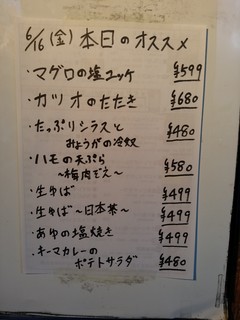 6/16(金)本日のオススメ
・マグロの塩ユッケ ¥599
・カツオのたたき ¥680
・たっぷりシラスと
みょうがの冷奴 ¥480
・ハモの天ぷら
~梅肉ぞえ~ ¥580
・生ゆば ¥499
・生そば~日本茶~ ¥499
・あゆの塩焼き ¥499
・キーマカレーの
ポテトサラダ ¥480